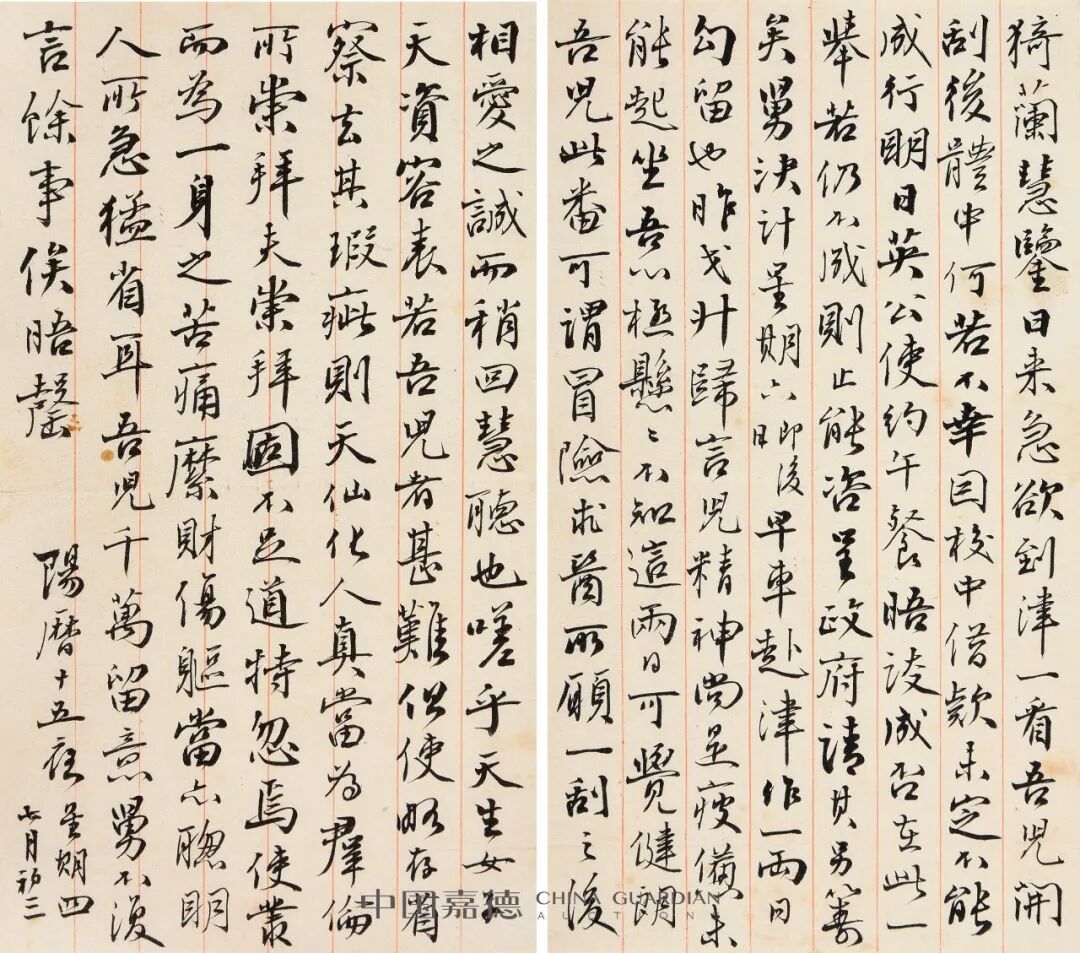 猗蘭慧鑒日来急欲到津一看吾児開
刮後體中何若不幸因校中借款未定不能
成行明日英公使約午餐晤談成否在此一
舉若仍不成則止能咨呈政府請其另籌
矣舅決計星期六即後日早車赴津作一兩日
勾留也昨戈升歸言児精神尚是疲憊未
能起坐吾心極懸懸不知這兩日可覺健朗
吾児此番可謂冒險求醫所願一刮之後
相愛之誠而稍回慧聽也嗟乎天生女子
天資容表若吾児者甚難但使略存省
察去其瑕疵則天仙化人真當為羣倫
所崇拜夫崇拜固不足道特忽焉使叢
而為一身之苦痛縻財傷軀當亦聰明
人所急猛省耳吾児千萬留意舅不復
言餘事俟晤罄
陽曆十五夜
星期四
七月初三
中国嘉德 CHINA GUARDIAN
AUCTIONS